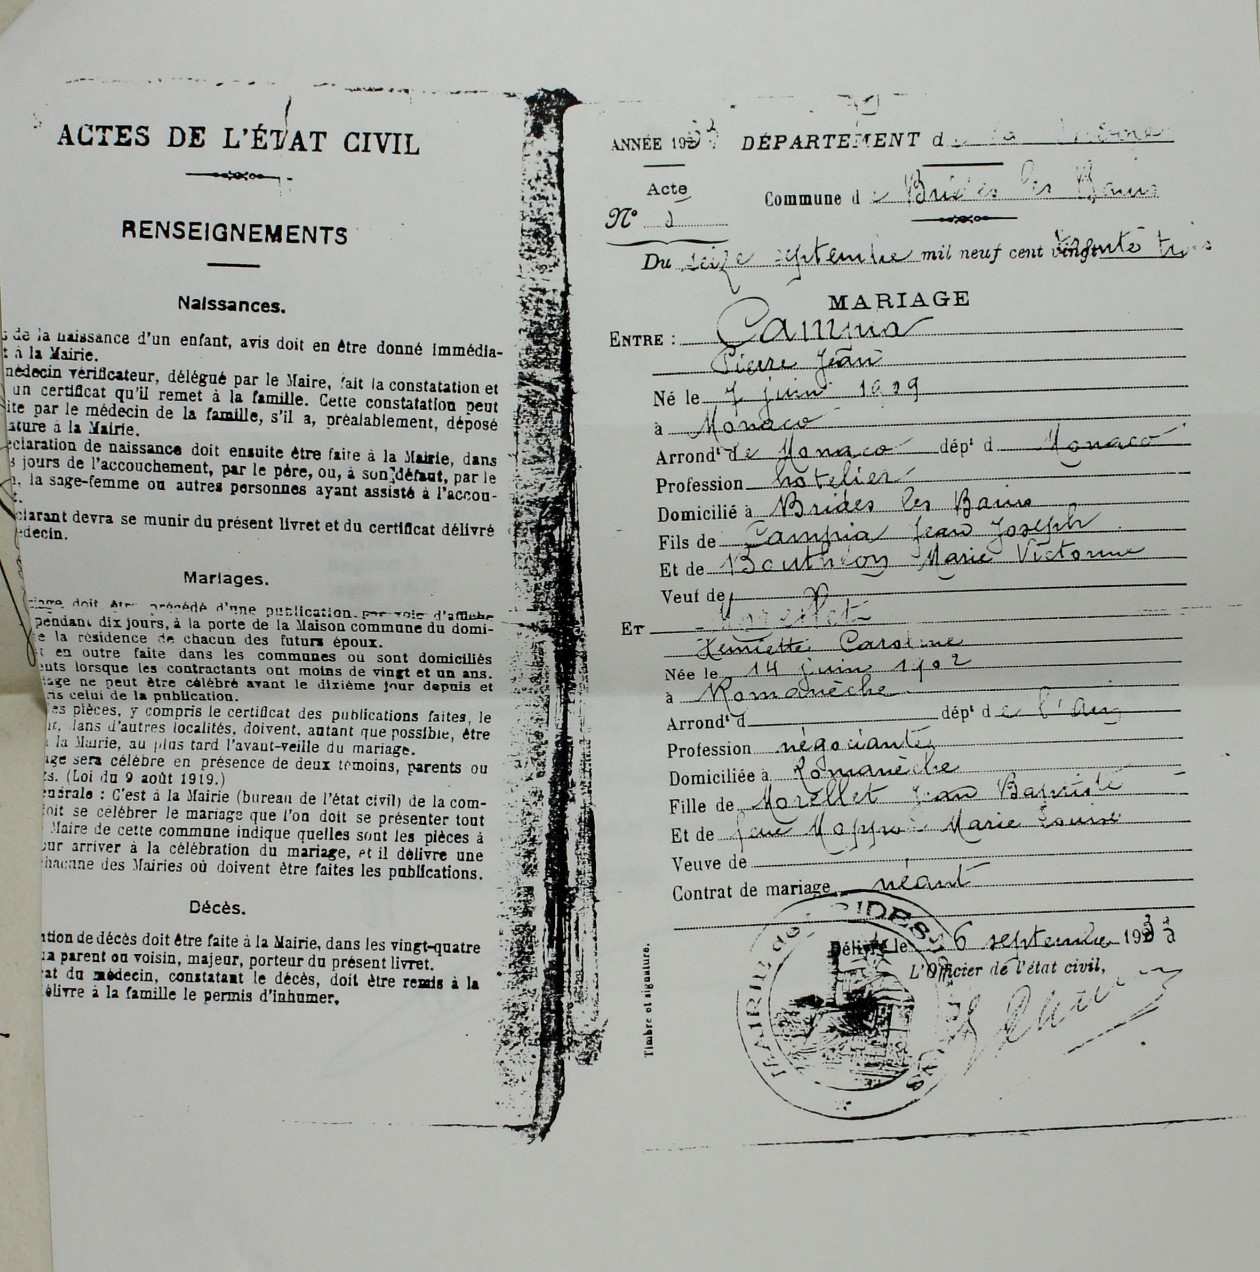 ACTES DE L'ÉTAT CIVIL
RENSEIGNEMENTS
Naissances.
de la naissance d'un enfant, avis doit en être donné immédia-
t à la Mairie.
médecin vérificateur, délégué par le Maire, fait la constatation et
un certificat qu'il remet à la famille. Cette constatation peut
ite par le médecin de la famille, s'il a, préalablement, déposé
ature à la Mairie.
claration de naissance doit ensuite être faite à la Mairie, dans
s jours de l'accouchement, par le père, ou, à son défaut, par le
n, la sage-femme ou autres personnes ayant assisté à l'accou-
t.
clarant devra se munir du présent livret et du certificat délivré
édecin.
Mariages.
riage doit être précédé d'une publication par voie d'affiche
pendant dix jours, à la porte de la Maison commune du domi-
e la résidence de chacun des futurs époux.
t en outre faite dans les communes où sont domiciliés
ents lorsque les contractants ont moins de vingt et un ans.
iage ne peut être célébré avant le dixième jour depuis et
ris celui de la publication.
es pièces, y compris le certificat des publications faites, le
dans d'autres localités, doivent, autant que possible, être
à la Mairie, au plus tard l'avant-veille du mariage.
age sera célébré en présence de deux témoins, parents ou
s. (Loi du 9 août 1919.)
énérale : C'est à la Mairie (bureau de l'état civil) de la com-
doit se célébrer le mariage que l'on doit se présenter tout
Maire de cette commune indique quelles sont les pièces à
our arriver à la célébration du mariage, et il délivre une
chacune des Mairies où doivent être faites les publications.
Décès.
ation de décès doit être faite à la Mairie, dans les vingt-quatre
un parent ou voisin, majeur, porteur du présent livret.
cat du médecin, constatant le décès, doit être remis à la
délivre à la famille le permis d'inhumer.
ANNÉE 1933 DÉPARTEMENT de la
Acte
N° 2
Commune de Brides les Bains
Du seize septembre mil neuf cent trente trois
MARIAGE
ENTRE : Campia
Pierre Jean
Né le 7 juin
à Monaco
Arrondt de Monaco dépt d Monaco
Profession hôtelier
Domicilié à Brides les Bains
Fils de Campia Jean Joseph
Et de Bouthéon Marie Victorine
Veuf de
ET Morellet
Henriette Caroline
Née le 14 juin 1902
à Romanèche
Arrondt d dépt de l'Ain
Profession négociante
Domiciliée à Romanèche
Fille de Morellet Jean Baptiste
Et de feue Marie Louise
Veuve de
Contrat de mariage néant
Délivré le 16 septembre 1933
L'Officier de l'état civil,
Timbre et signature.
MAIRIE DE BRIDES